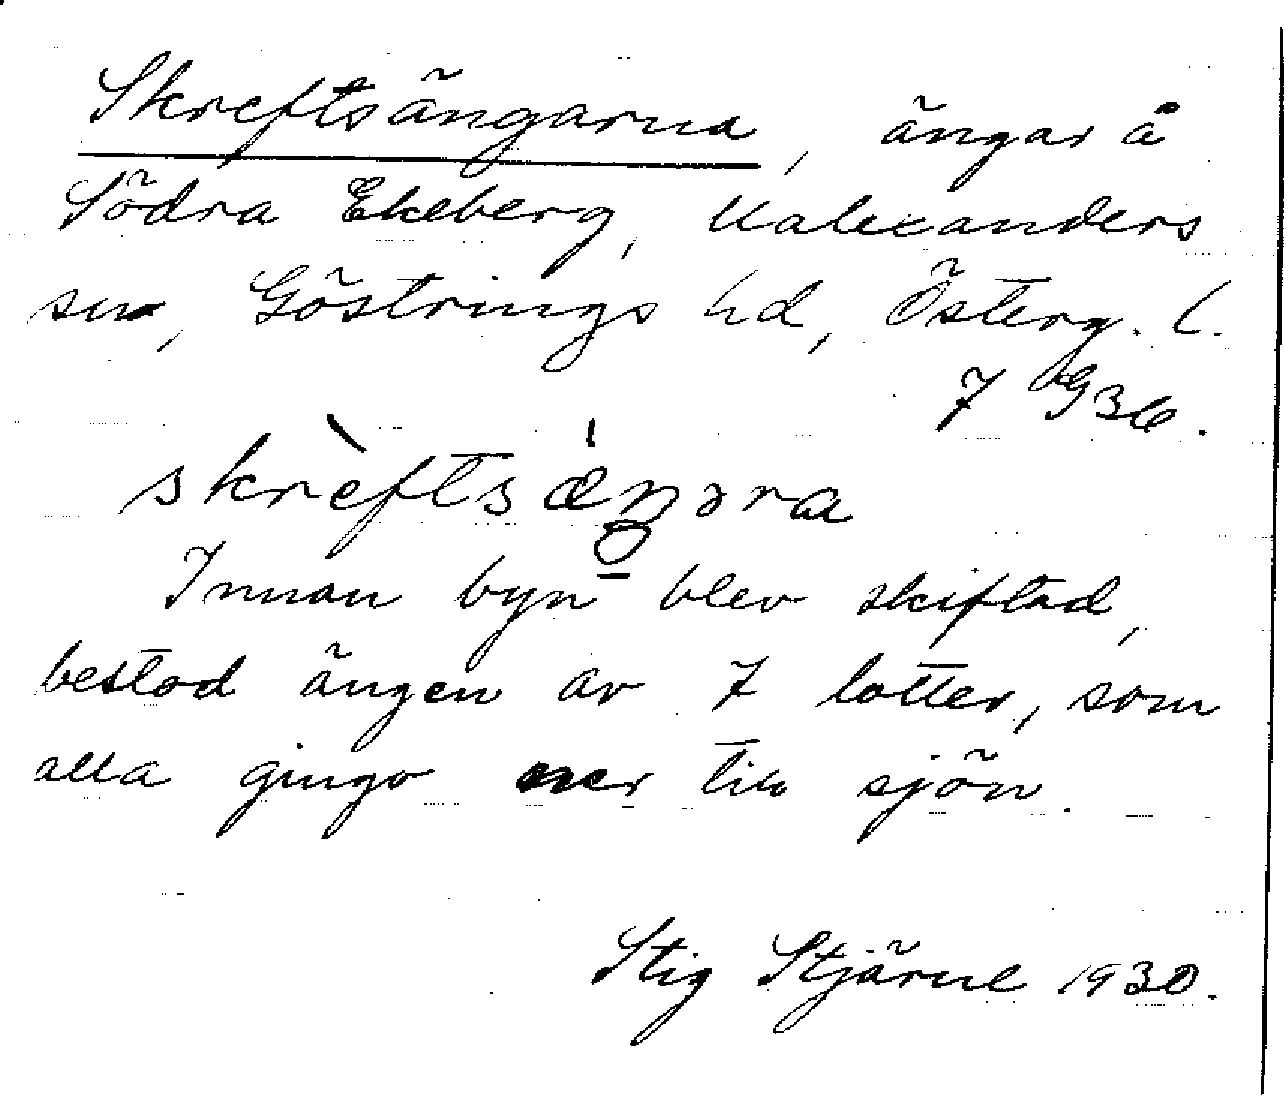 Skreftsängarna, ängar å
Södra Ekeberg, Kalexanders
sn, Göstrings hd, Österg. l.
7 G36.
skrèftsæ̀ŋəra
Innan byn blev skiftad,
bestod ängen av 7 lotter, som
alla gingo ner till sjön.
Stig Stjärne 1930.